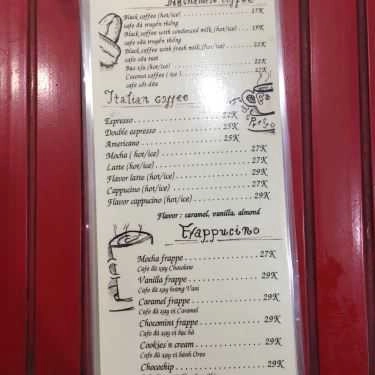 Vietnamese coffee
Black coffee (hot/ice) 17K
cafe đá truyền thống
Black coffee with condensed milk (hot/ice) 19K
cafe sữa truyền thống
Black coffee with fresh milk (hot/ice) 22K
cafe sữa tươi
Bac xỉu (hot/ice) 22K
Coconut coffee ( ice ) 27K
cafe cốt dừa
Italian coffee
Espresso 22K
Double espresso 25K
Americano 25K
Mocha ( hot/ice) 27K
Latte (hot/ice) 27K
Flavor latte (hot/ice) 29K
Cappucino (hot/ice) 27K
Flavor cappucino (hot/ice) 29K
Flavor : caramel, vanilla, almond
Frappucino
Mocha frappe 27K
Cafe đá xay Chocolate
Vanilla frappe 29K
Cafe đá xay hương Vani
Caramel frappe 29K
Cafe đá xay vị Caramel
Chocomint frappe 29K
Cafe đá xay vị bạc hà
Cookies n cream 29K
Cafe đá xay vị bánh Oreo
Chocochip 29K